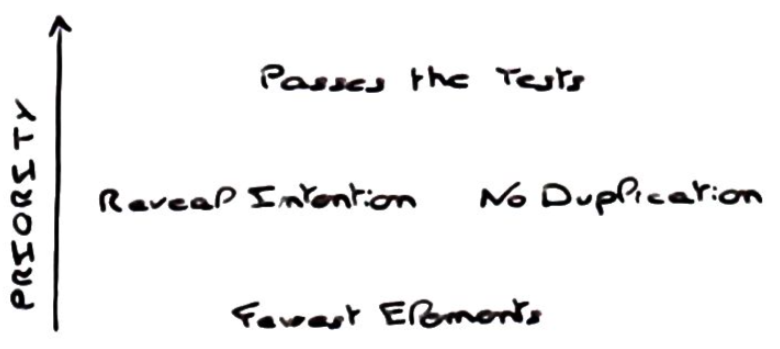 PRIORITY
Passes the Tests
Reveal Intention No Duplication
Fewest Elements